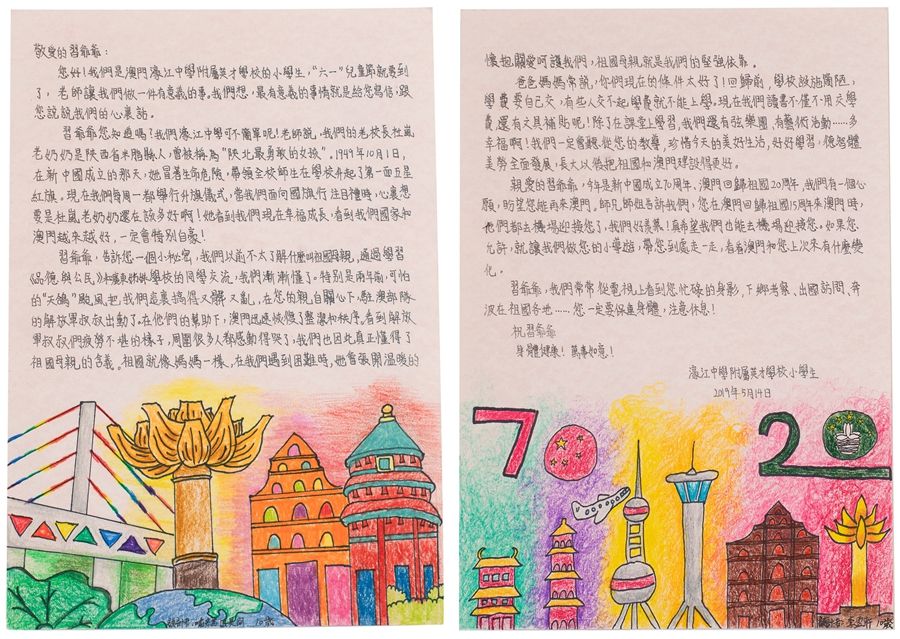 敬愛的習爺爺：
您好！我們是澳門濠江中學附屬英才學校的小學生，“六一”兒童節就要到
了，老師讓我們做一件有意義的事。我們想，最有意義的事情就是給您寫信，跟
您說說我們的心裏話。
習爺爺您知道嗎？我們濠江中學可不簡單呢！老師說，我們的老校長杜嵐
老奶奶是陝西省米脂縣人，曾被稱為“陝北最勇敢的女孩”。1949年10月1日，
在新中國成立的那天，她冒著生命危險，帶領全校師生在學校升起了第一面五星
紅旗。現在我們每周一都舉行升旗儀式，當我們面向國旗行注目禮時，心裏想
要是杜嵐老奶奶還在該多好啊！她看到我們現在幸福成長，看到我們國家和
澳門越來越好，一定會特別自豪！
習爺爺，告訴您一個小秘密，我們以前不太了解什麼叫祖國母親，通過學習
《品德與公民》和 學校的同學交流，我們漸漸懂了。特別是兩年前，可怕
的“天鴿”颱風把我們這裏搞得又髒又亂，在您的親自關心下，駐澳部隊
的解放軍叔叔出動了。在他們的幫助下，澳門迅速恢復了整潔和秩序。看到解放
軍叔叔們疲勞不堪的樣子，周圍很多人都感動得哭了，我們也因此真正懂得了
祖國母親的含義。祖國就像媽媽一樣，在我們遇到困難時，她會張開溫暖的
懷抱關愛呵護我們，祖國母親就是我們的堅強依靠。
爸爸媽媽常說，你們現在的條件太好了！回歸前，學校設施簡陋，
學費要自己交，有些人交不起學費就不能上學。現在我們讀書不僅不用交學
費，還有文具補貼呢！除了在課堂上學習，我們還有弦樂團，有藝術活動……多
幸福啊！我們一定會聽從您的教導，珍惜今天的美好生活，好好學習，德智體
美勞全面發展，長大以後把祖國和澳門建設得更好。
親愛的習爺爺，今年是新中國成立70周年、澳門回歸祖國20周年，我們有一個心
願，盼望您能再來澳門。師兄師姐告訴我們，您在澳門回歸祖國15周年來澳門時，
他們都去機場迎接您了，我們好羨慕！真希望我們也能去機場迎接您。如果您
允許，就讓我們做您的小導遊，帶您到處走一走，看看澳門和您上次來有什麼變
化。
習爺爺，我們常常從電視上看到您忙碌的身影，下鄉考察、出國訪問、奔
波在祖國各地……您一定要保重身體，注意休息！
祝習爺爺
身體健康！萬事如意！
濠江中學附屬英才學校小學生
2019年5月14日
70 20
10歲
10歲